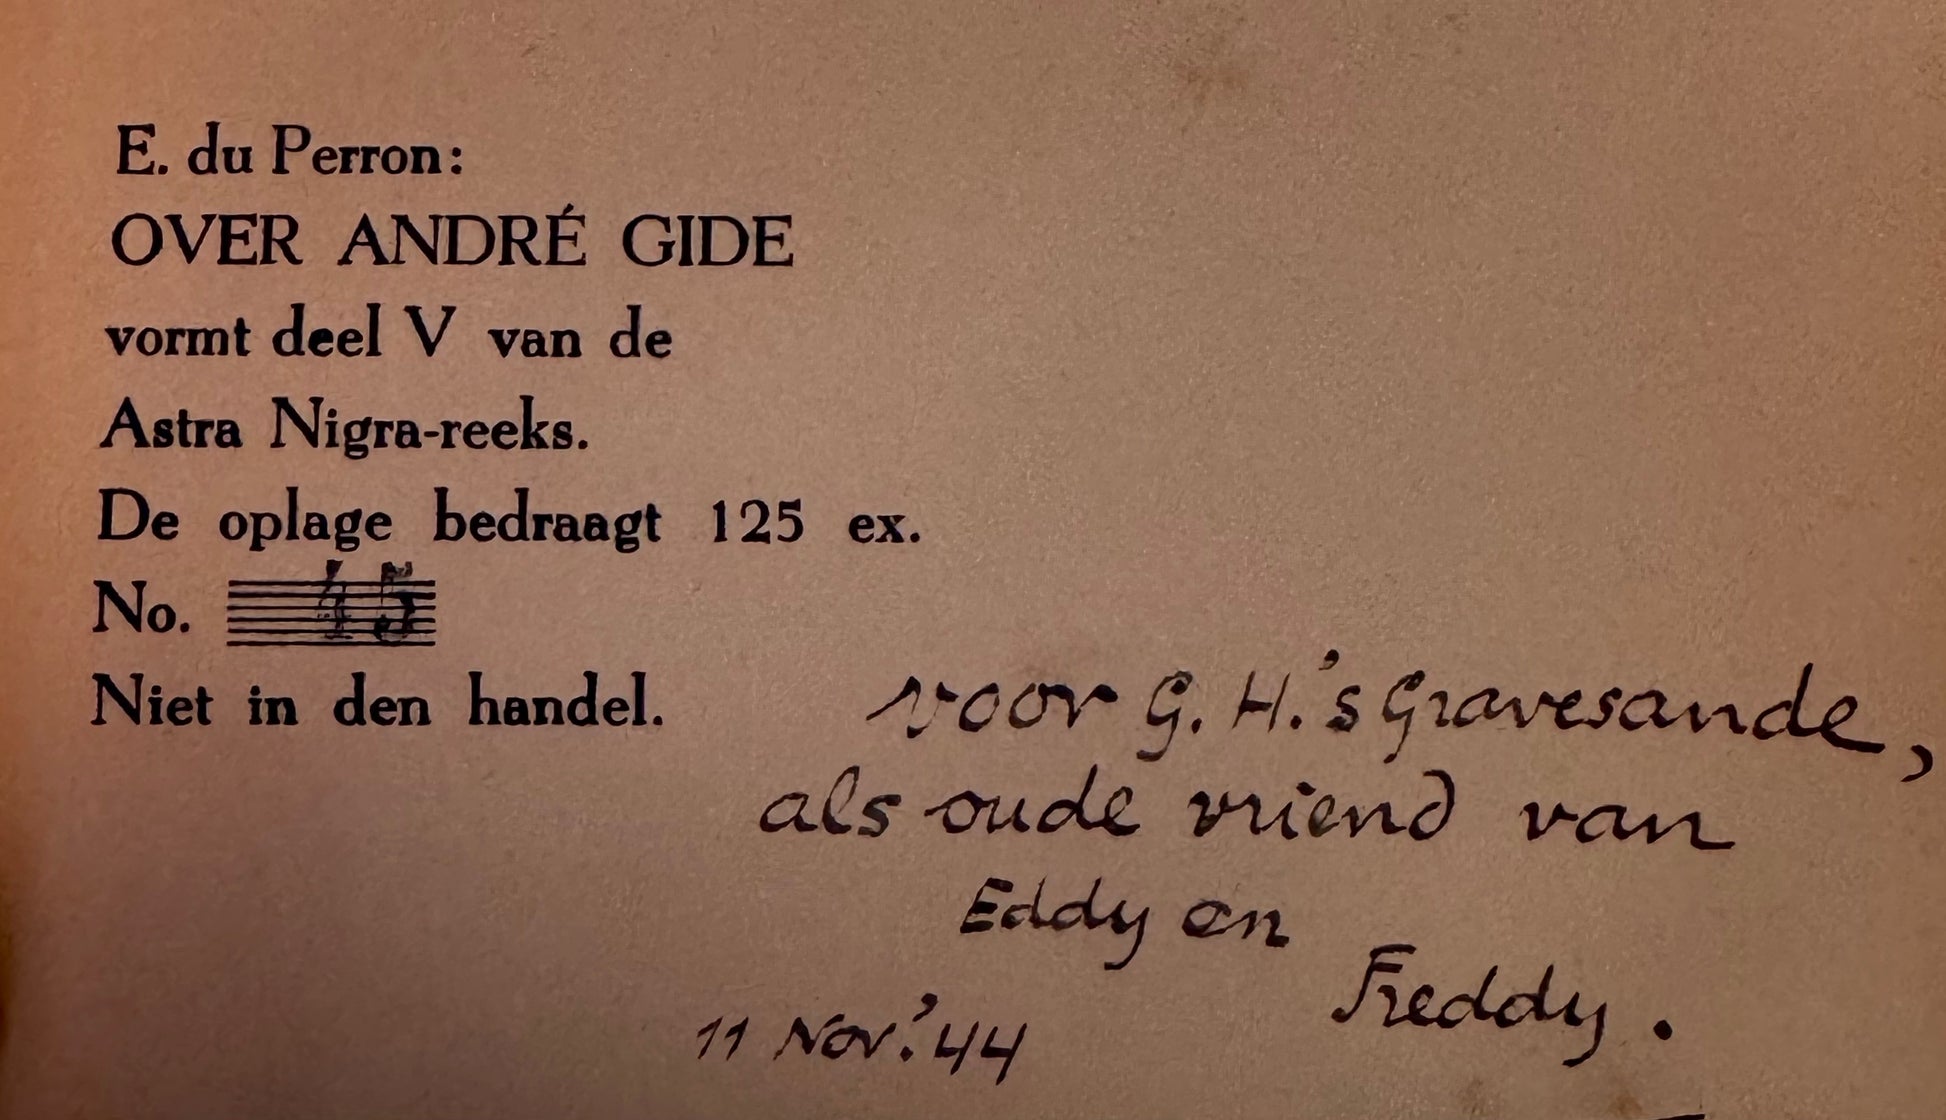 E. du Perron:
OVER ANDRÉ GIDE
vormt deel V van de
Astra Nigra-reeks.
De oplage bedraagt 125 ex.
No. 45
Niet in den handel.
voor G. H. 's Gravesande,
als oude vriend van
Eddy en
Freddy.
11 Nov. '44